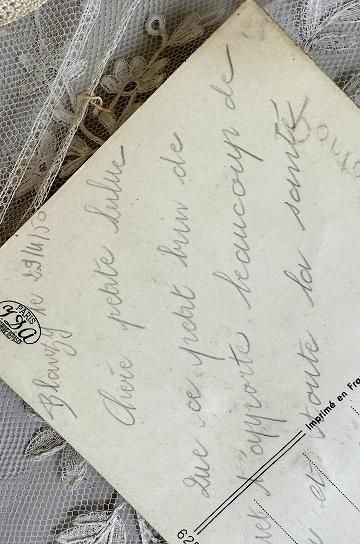 Blanzy le 29/4/50
Chère petite Lulue
Que ce petit brin de
t'apporte beaucoup de
et toute la santé
Imprimé en Fra
PARIS
628